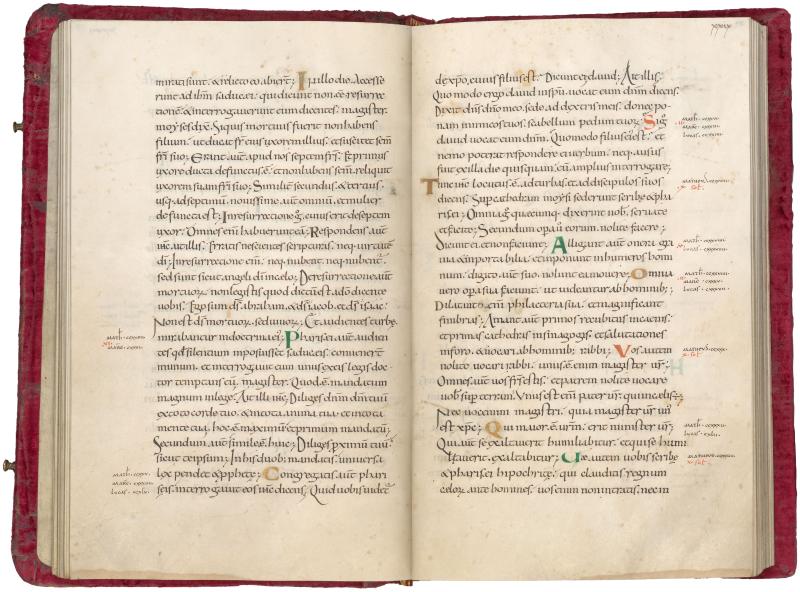 mirati sunt. & relicto eo abierunt; In illo die accesse
runt ad illum saducaei. qui dicunt non e̅e resurrec
tione̅. & interrogaverunt eum dicentes. magister.
moyses dix̅. Si quis mortuus fuerit non habens
filium. ut ducat fr̅ eius uxorem illius. et suscitet sem̅
fr̅i suo; Erant aut̅. apud nos septem fr̅s. & primus
uxore ducta defunctus. e̅. et non habens sem̅. reliquit
uxorem suam fr̅i suo; Similit̅ secundus. & tertius.
usq; ad septimu̅. novissime aut̅ omnium. et mulier
defuncta est; In resurrectione g̊. cuius erit de septem
uxor. Omnes eni̅ habuerunt ea̅; Respondens. aut̅
ih̅s. ait illis; Erratis nescientes scripturas. neq; virtute̅
di̅; In resurrectione eni̅. neq; nubent. neq; nubent̅.
sed sunt sicut angeli di̅ in caelo; De resurrectione aut̅
mortuor̅. non legistis quod dictu̅ est a do̅ dicente
vobis. Ego sum ds̅ abraham. & ds̅ isaac. et ds̅ iacob.
Non est ds̅ mortuor̅. sed vivor̅; Et audientes turbę
mirabantur in doctrina ei; Pharisei aut̅. audien
tes qd̅ silentium imposuisset saduceis. convenerunt
in unum. et interrogavit eum unus ex eis legis doc
tor temptans eu̅. magister. Quod. e̅. mandatum
magnum in lege. Ait illi ih̅s; Diliges dn̅m dm̅ tuu̅
ex toto corde tuo. & in tota anima tua. et in tota
mente tua. hoc. e̅. maximu̅. et primum mandatu̅;
Secundum aut̅. simile. e̅. huic; Diliges proximu̅ tuu̅
sicut te ipsum; In his duob; mandatis. universa
lex pendet. & pphete; Congregatis. aut̅ phari
seis. interrogavit eos ih̅s dicens; Quid vobis videt̅
de xp̅o. cuius filius est. Dicunt ei; david; Ait illis.
Quo modo ergo david in sp̅u. vocat eum dn̅m dicens.
Dixit dn̅s dn̅o meo. sede a dextris meis. donec po
nam inimicos tuos. scabellum pedum tuor̅; Si g̊
david vocat eum dn̅m. Quomodo filius ei est; Et
nemo poterat respondere ei verbum. neq; ausus
fuit ex illa die quisquam. eu̅ amplius interrogare;
Tunc ih̅s locutus. e̅. ad turbas. et ad discipulos suos
dicens; Sup cathedram moysi sederunt scribe & pha
risei; Omnia g̊. quaecunq; dixerint vob̅. servate
et facite; Secundum opa v̅ eorum. nolite facere;
Dicunt ei. et non faciunt; Alligant aut̅ onera gra
via & importabilia. et imponunt in humeros homi
num. digito aut̅ suo. nolunt ea movere; Omnia
vero opa sua faciunt. ut videantur ab hominib;
Dilatant eni̅ philacteria sua. et magnificant
fimbrias; Amant aut̅ primos recubitus in cenis.
et primas cathedras in sinagogis. et salutationes
in foro. & vocari ab hominib; rabbi; Vos autem
nolite vocari rabbi. unus. e̅. enim magister vr̅.
Omnes. aut̅ vos fr̅s estis. et patrem nolite vocare
vob̅ sup terram. Unus est eni̅ pater vr̅. qui in caelis. e̅;
Nec vocemini magistri. quia magister vr̅ un̅
est xp̅c; Qui maior. e̅. vr̅m. erit minister vr̅;
Qui. aut̅ se exaltaverit humiliabitur. et qui se humi
liaverit. exaltabitur; Vae. autem vobis scribę
& pharisei hipochritę. qui clauditis regnum
celor̅ ante homines. vos enim non intratis. nec in